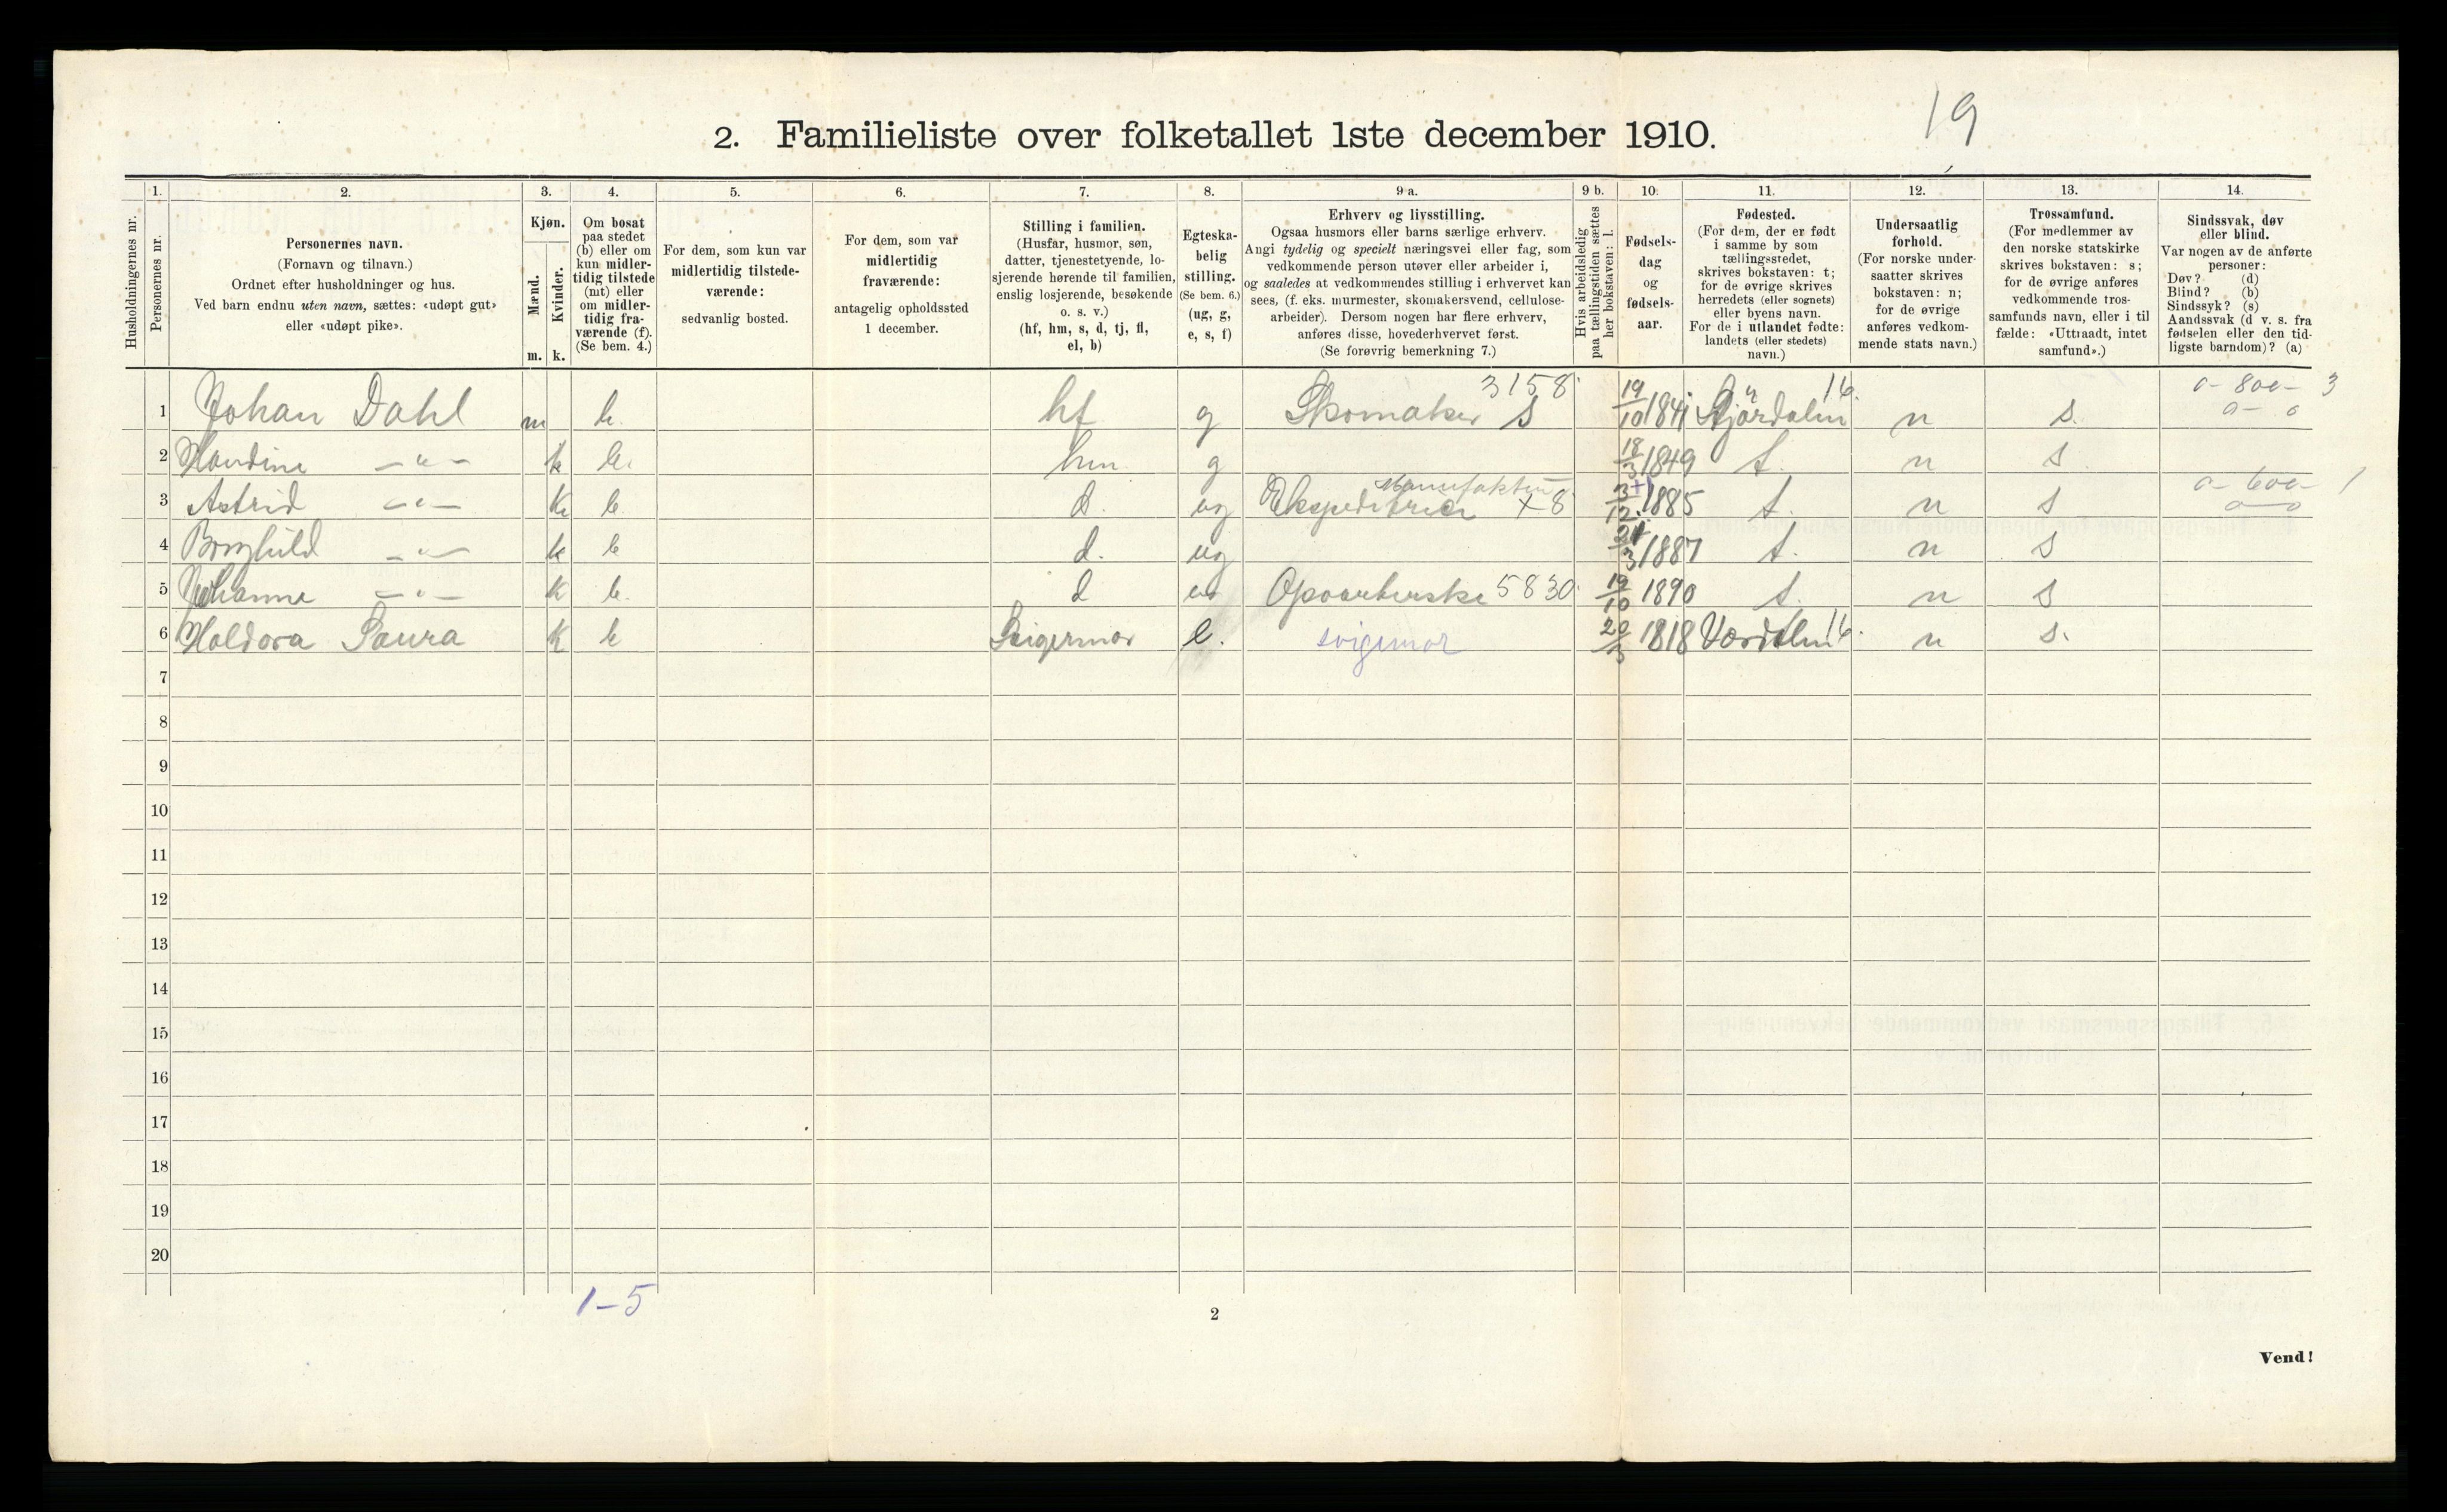 19
2. Familieliste over folketallet 1ste december 1910.
1. 2. 3. 4. 5. 6. 7. 8. 9 a. 9 b. 10. 11. 12. 13. 14.
Husholdningernes nr.
Personernes nr.
Personernes navn.
(Fornavn og tilnavn.)
Ordnet efter husholdninger og hus.
Ved barn endnu uten navn, sættes: «udøpt gut»
eller «udøpt pike».
Kjøn.
Mænd.
Kvinder.
m. k.
Om bosat
paa stedet
(b) eller om
kun midler-
tidig tilstede
(mt) eller
om midler-
tidig fra-
værende (f).
(Se bem. 4.)
For dem, som kun var
midlertidig tilstede-
værende:
sedvanlig bosted.
For dem, som var
midlertidig
fraværende:
antagelig opholdssted
1 december.
Stilling i familien.
(Husfar, husmor, søn,
datter, tjenestetyende, lo-
sjerende hørende til familien,
enslig losjerende, besøkende
o. s. v.)
(hf, hm, s, d, tj, fl,
el, b)
Egteska-
belig
stilling.
(Se bem. 6.)
(ug, g,
e, s, f)
Erhverv og livsstilling.
Ogsaa husmors eller barns særlige erhverv.
Angi tydelig og specielt næringsvei eller fag, som
vedkommende person utøver eller arbeider i,
og saaledes at vedkommendes stilling i erhvervet kan
sees, (f. eks. murmester, skomakersvend, cellulose-
arbeider). Dersom nogen har flere erhverv,
anføres disse, hovederhvervet først.
(Se forøvrig bemerkning 7.)
Hvis arbeidsledig
paa tællingstiden sættes
her bokstaven: l.
Fødsels-
dag
og
fødsels-
aar.
Fødested.
(For dem, der er født
i samme by som
tællingsstedet,
skrives bokstaven: t;
for de øvrige skrives
herredets (eller sognets)
eller byens navn.
For de i utlandet fødte:
landets (eller stedets)
navn.)
Undersaatlig
forhold.
(For norske under-
saatter skrives
bokstaven: n;
for de øvrige
anføres vedkom-
mende stats navn.)
Trossamfund.
(For medlemmer av
den norske statskirke
skrives bokstaven: s;
for de øvrige anføres
vedkommende tros-
samfunds navn, eller i til
fælde: «Uttraadt, intet
samfund».)
Sindssvak, døv
eller blind.
Var nogen av de anførte
personer:
Døv? (d)
Blind? (b)
Sindssyk? (s)
Aandssvak (d v. s. fra
fødselen eller den tid-
ligste barndom)? (a)
3158 16. 0-800- 3
1 Johan Dahl m b. hf g Skomaker s 19/10 1841 Stjørdalen n s. 0-0
2 —"— k b. hm g 18/3 1849 t. n s
Manufaktur 0-600- 1
3 Astrid —"— k b. d. ug Ekspeditrice +8 3/12 1885 t. n s 0-0
4 Borghild —"— k b d. ug 1887 t. n s
5 Johanne —"— k b. d ug 5830 19/10 1890 t. n s
6 Haldora k b Svigermor e. svigermor 1818 Værdalen 16. n s.
7
8
9
10
11
12
13
14
15
16
17
18
19
20
1-5
2
Vend!